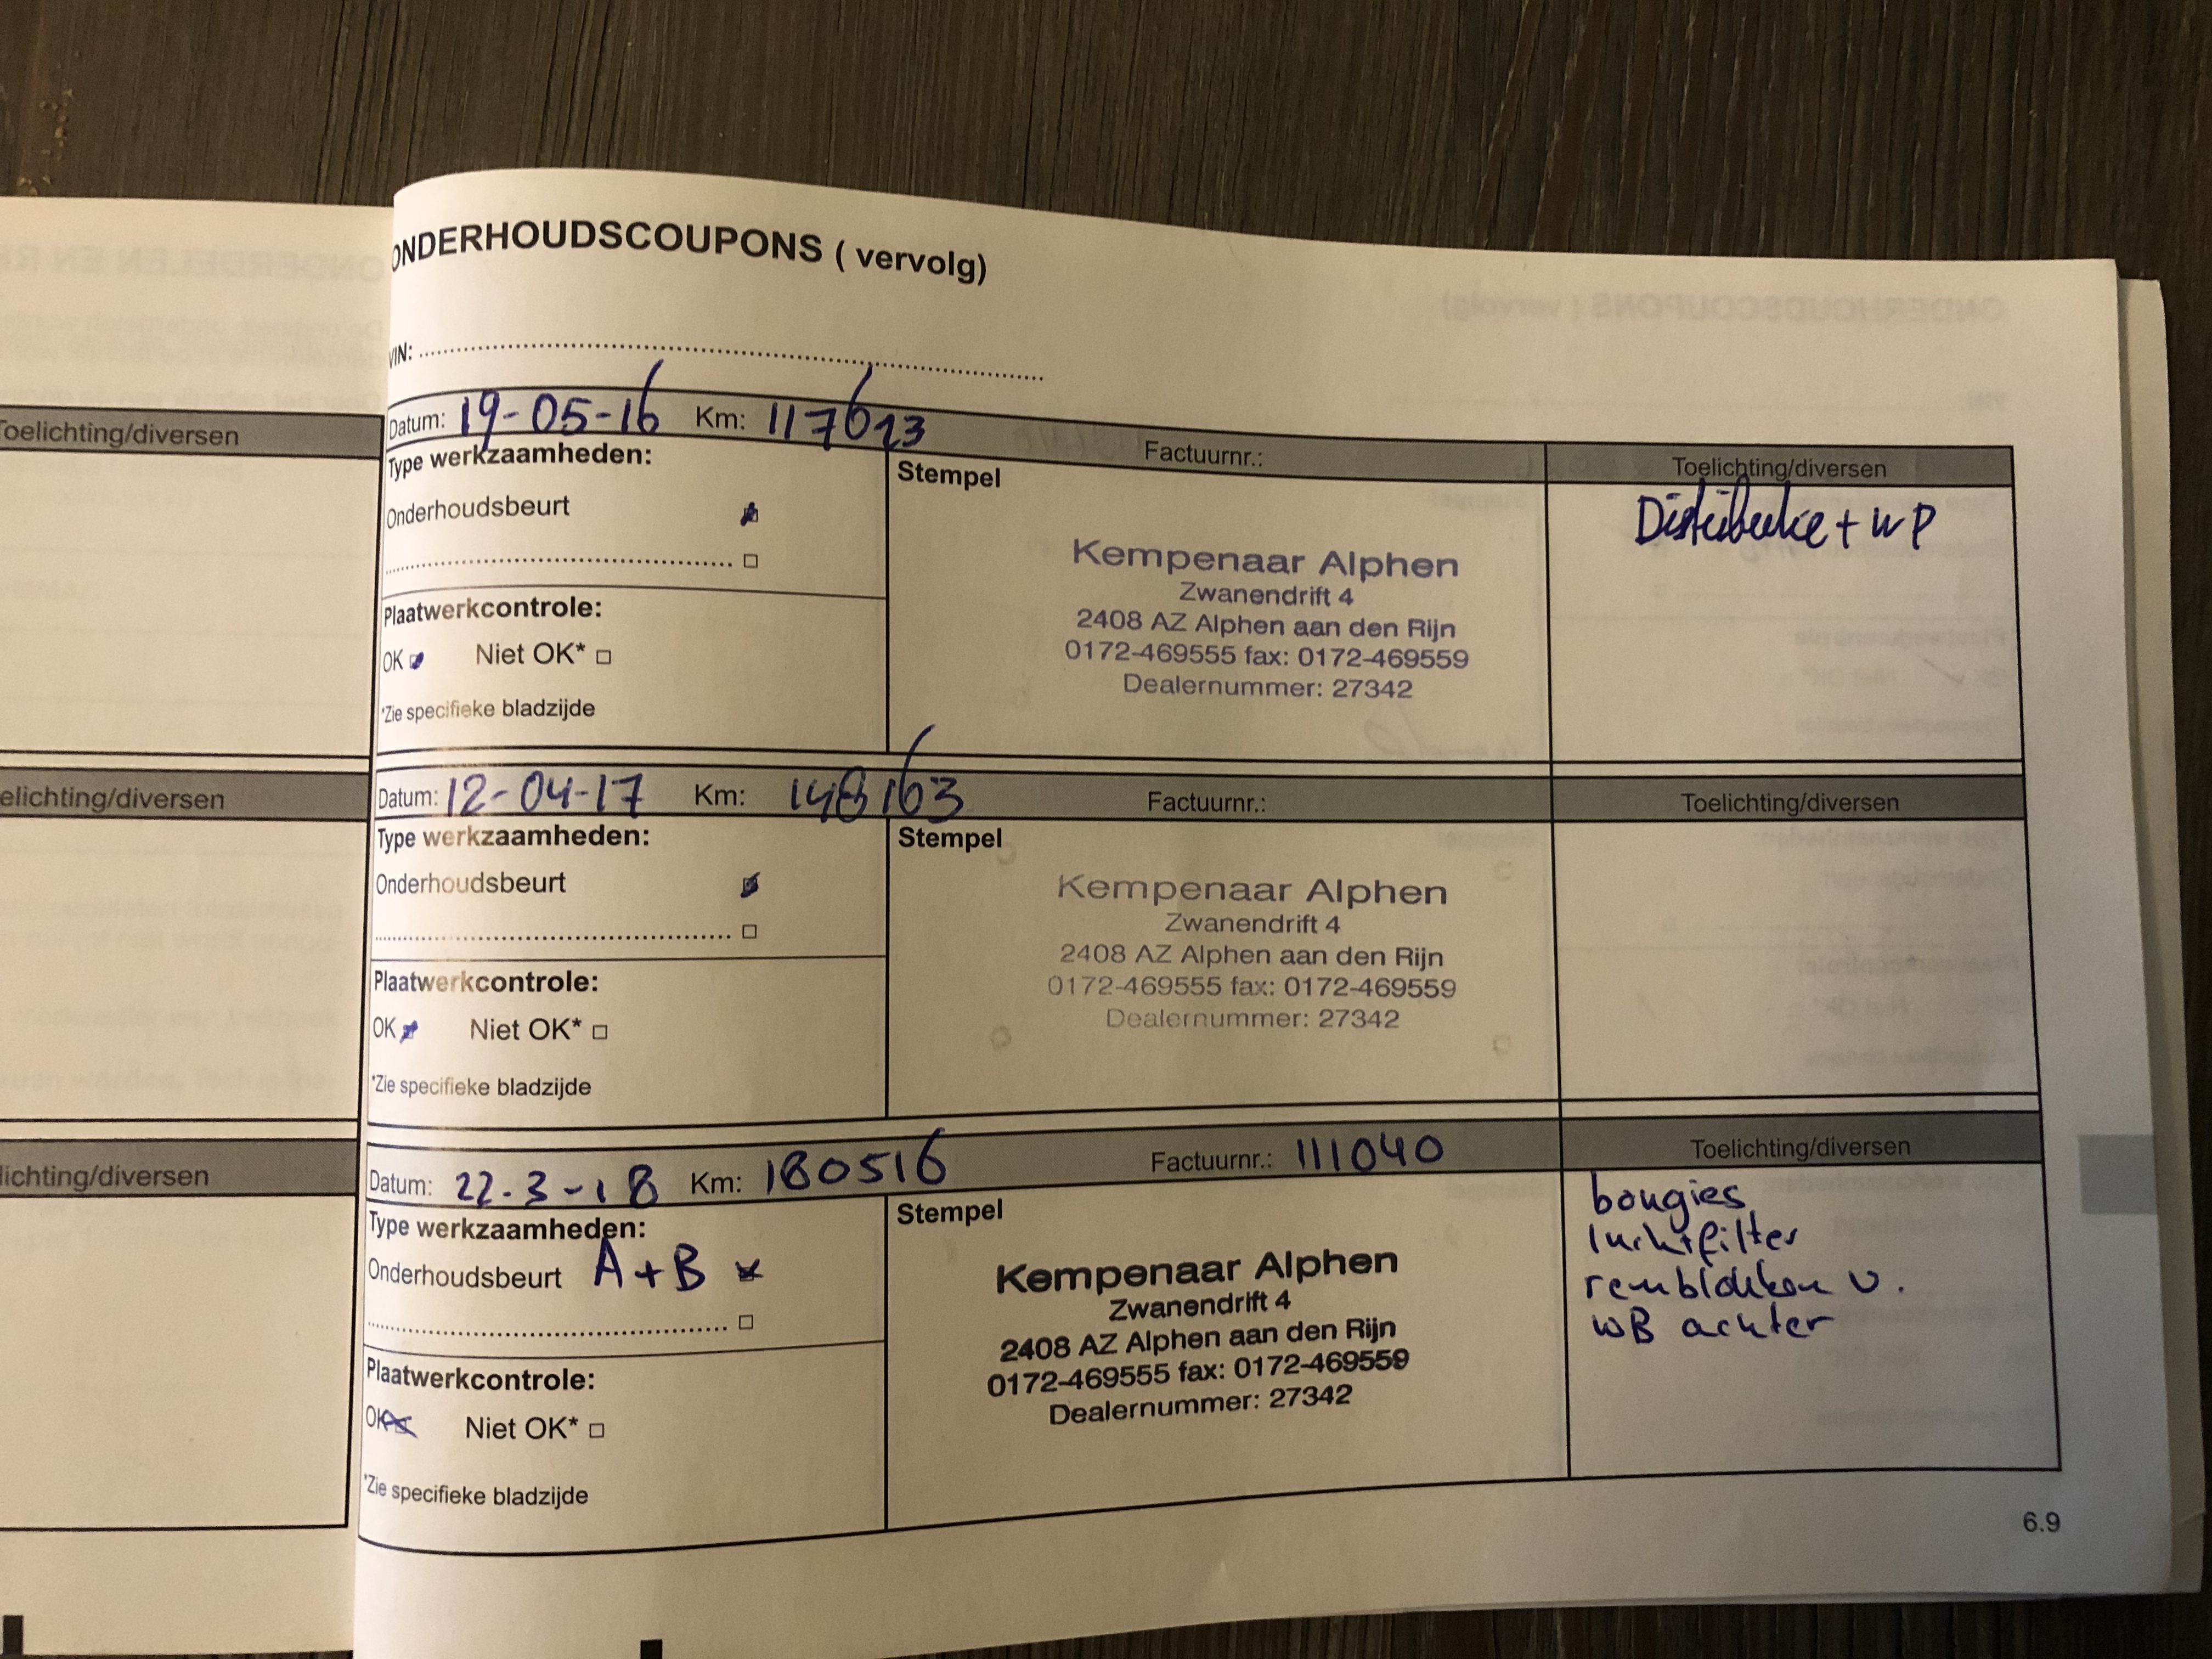 ONDERHOUDSCOUPONS ( vervolg)
VIN:
Toelichting/diversen
Datum: 19-05-16 Km: 117613
Factuurnr.:
Toelichting/diversen
Type werkzaamheden:
Onderhoudsbeurt
Plaatwerkcontrole:
OK Niet OK*
*Zie specifieke bladzijde
Stempel
Kempenaar Alphen
Zwanendrift 4
2408 AZ Alphen aan den Rijn
0172-469555 fax: 0172-469559
Dealernummer: 27342
Distributie + WP
elichting/diversen
Datum: 12-04-17 Km: 148163
Factuurnr.:
Toelichting/diversen
Type werkzaamheden:
Onderhoudsbeurt
Plaatwerkcontrole:
OK Niet OK*
*Zie specifieke bladzijde
Stempel
Kempenaar Alphen
Zwanendrift 4
2408 AZ Alphen aan den Rijn
0172-469555 fax: 0172-469559
Dealernummer: 27342
lichting/diversen
Datum: 22-3-18 Km: 180516
Factuurnr.: 111040
Toelichting/diversen
Type werkzaamheden:
Onderhoudsbeurt A+B
Plaatwerkcontrole:
OK Niet OK*
*Zie specifieke bladzijde
Stempel
Kempenaar Alphen
Zwanendrift 4
2408 AZ Alphen aan den Rijn
0172-469555 fax: 0172-469559
Dealernummer: 27342
bougies
luchtfilter
remblokken v.
WB achter
6.9